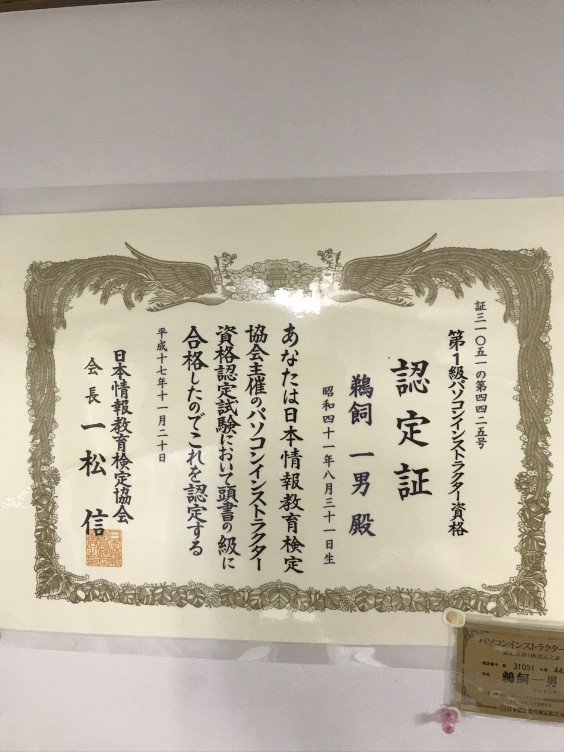 証三一〇五一の第四四二五号
第1級パソコンインストラクター資格
認定証
鵜飼一男 殿
昭和四十一年八月三十一日生
あなたは日本情報教育検定
協会主催のパソコンインストラクター
資格認定試験において頭書の級に
合格したのでこれを認定する
平成十七年十一月二十日
日本情報教育検定協会
会長 一松信
パソコンインストラクター
31051
鵜飼一男